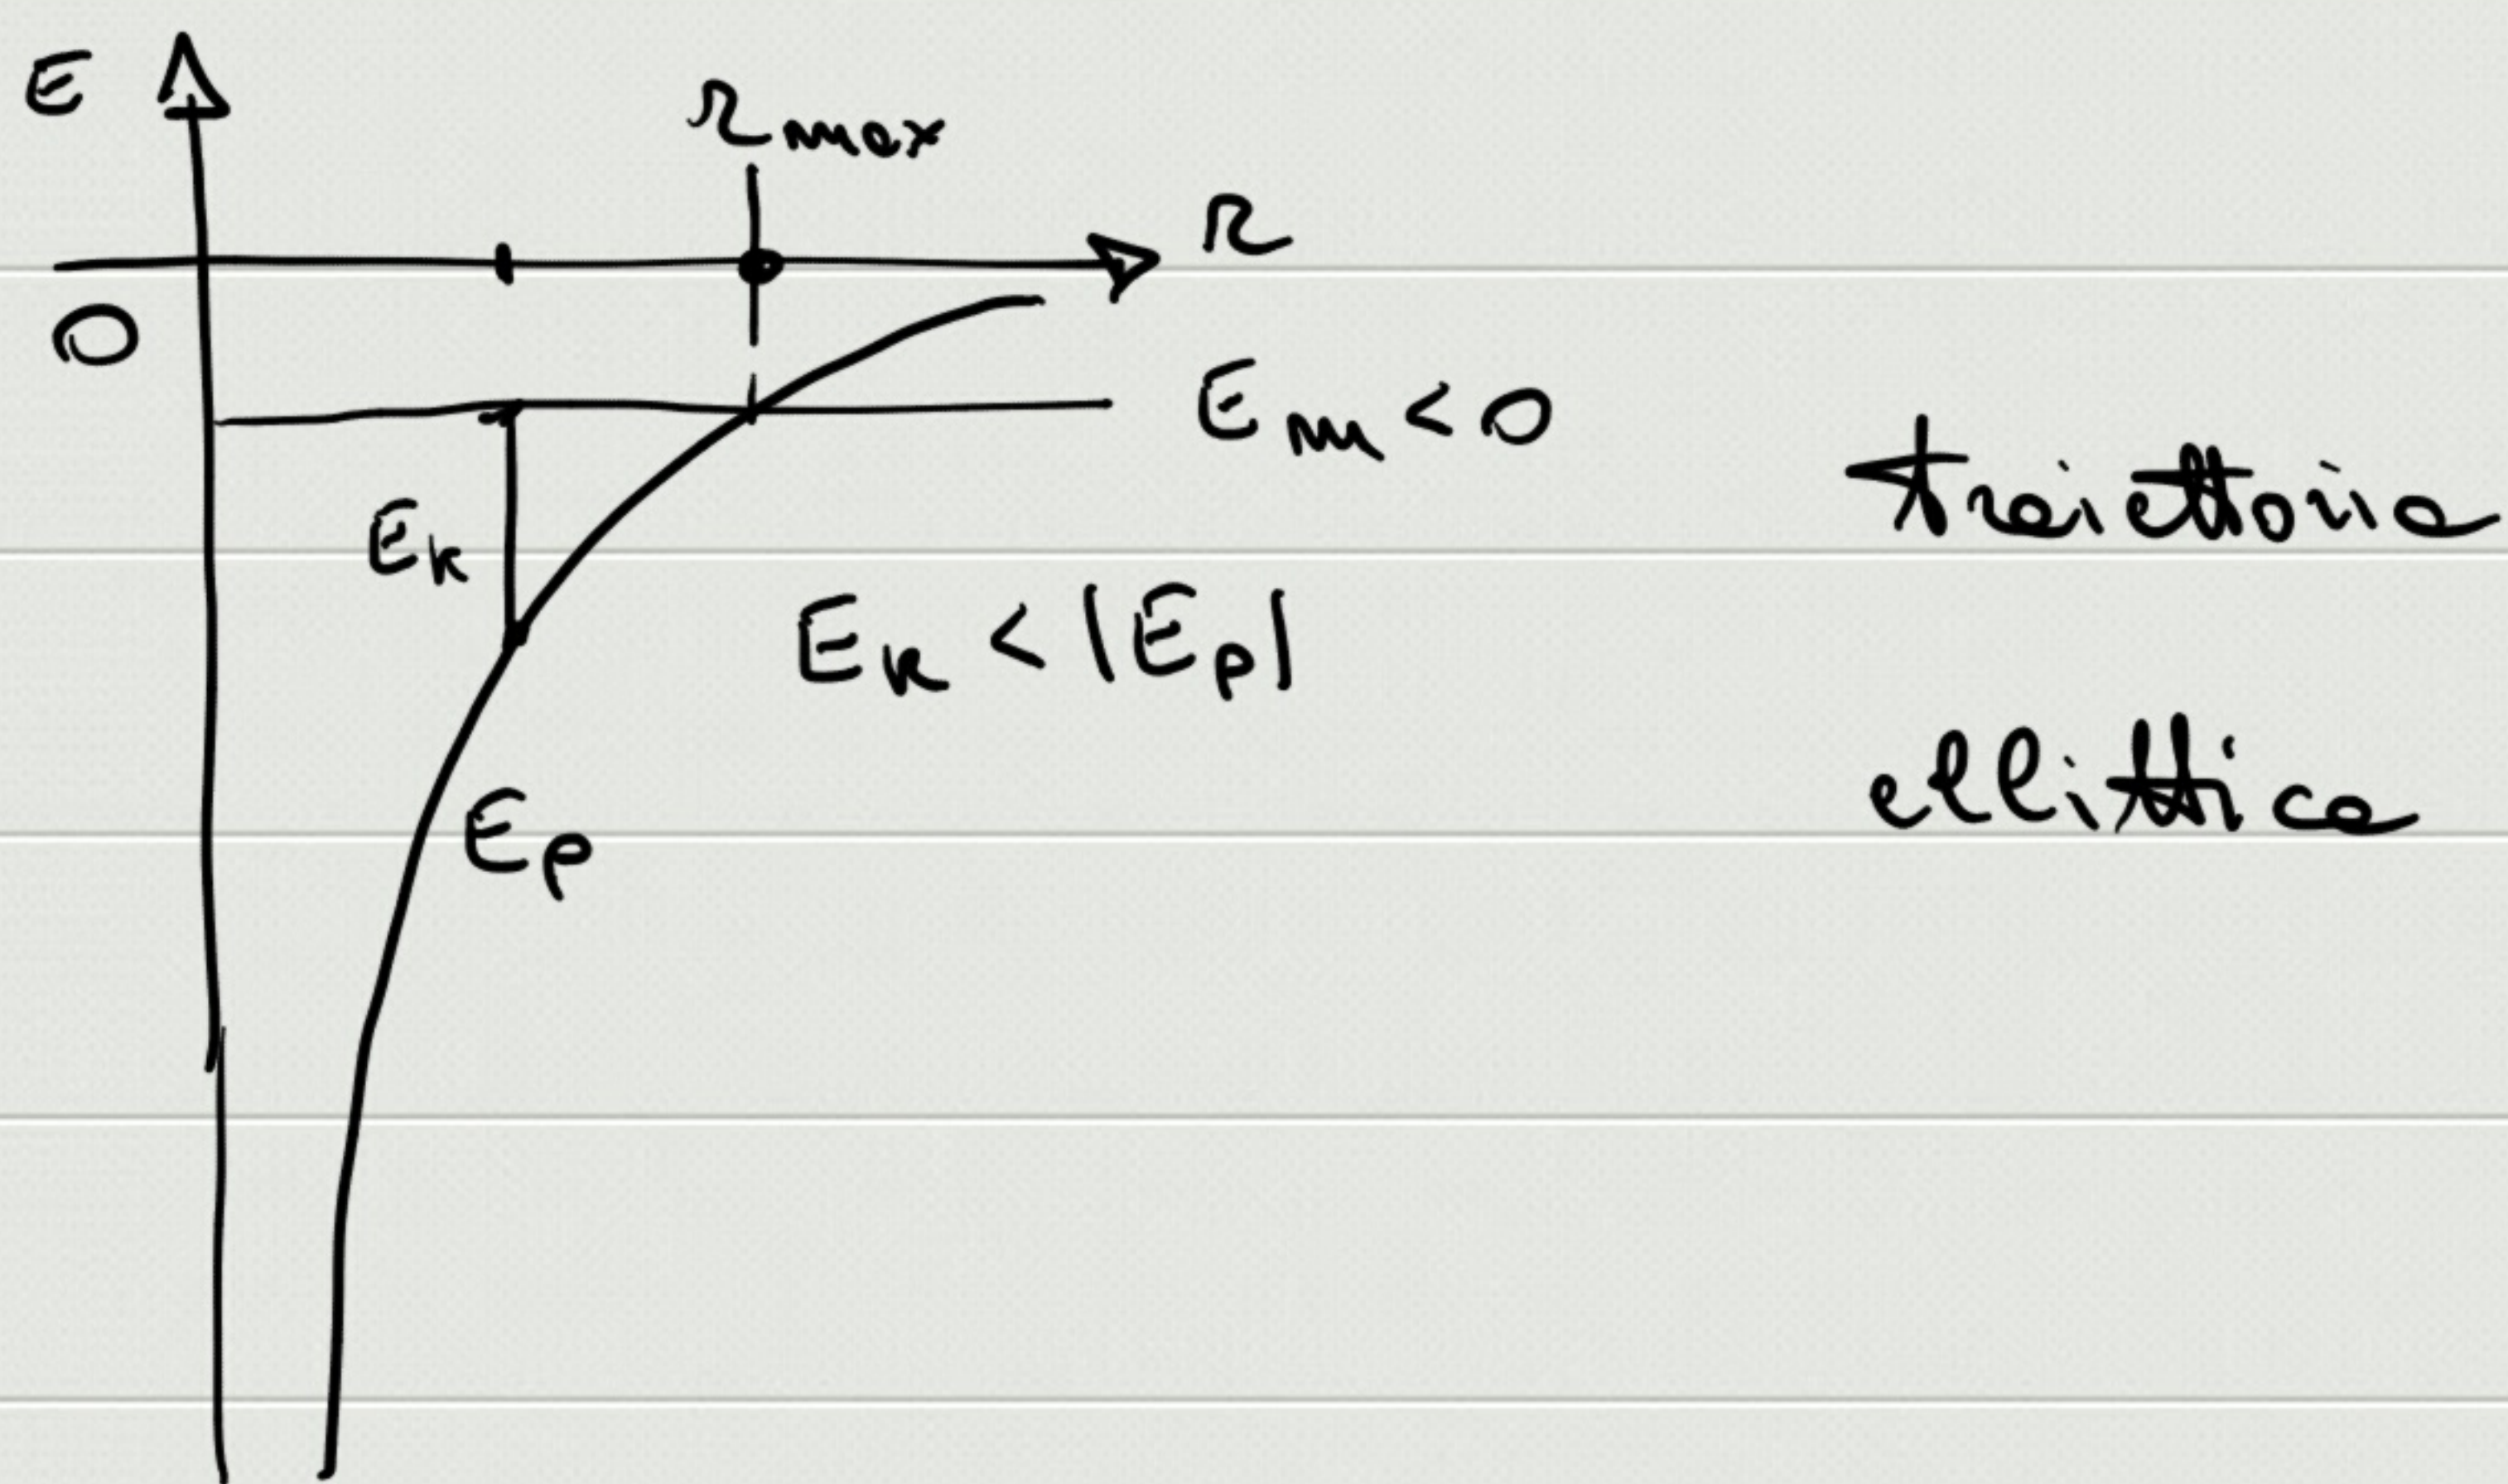 E
r max
r
0
E m < 0
traiettoria
E k
E k < |E p|
ellittica
E p